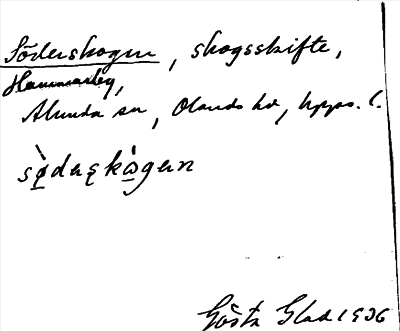 Söderskogen, skogsskifte,
Hammarby,
Alunda sn, Olands hd, Upps. l.
sø̀dəʂkɷ̀gən
Gösta Glad 1936